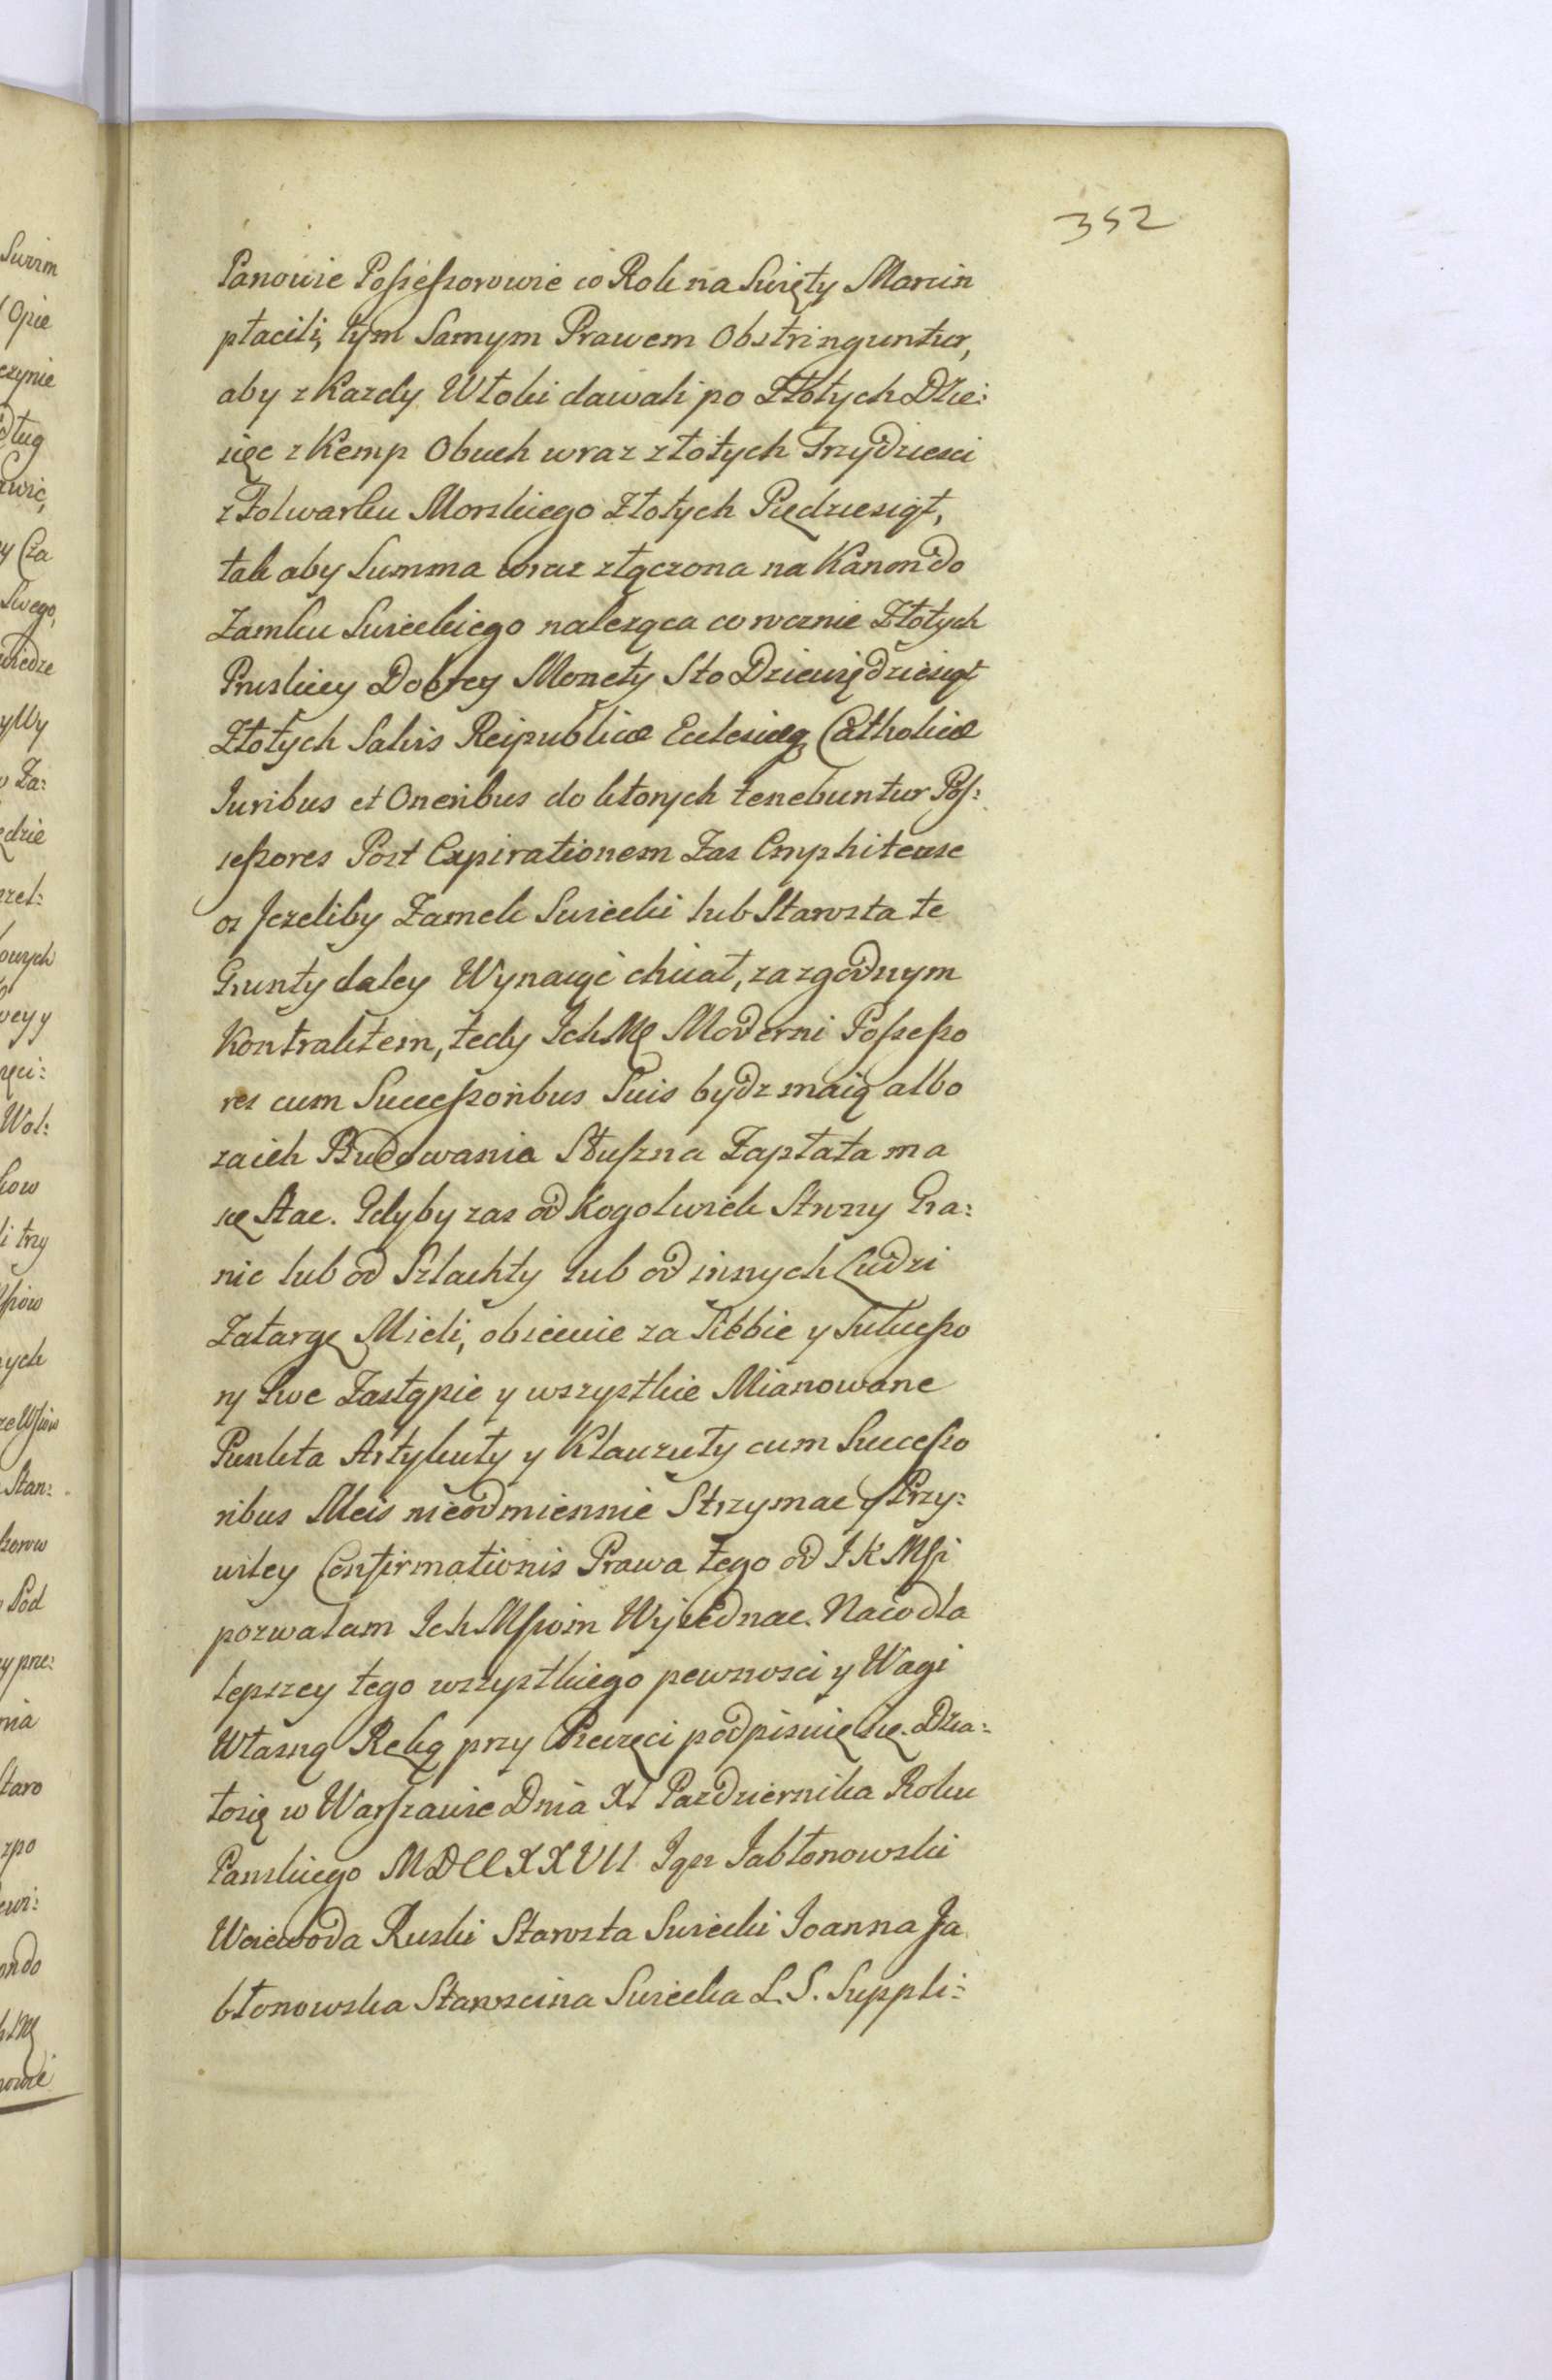 352
Panowie Possessorowie co Rok na Swięty Marcin
płacili, tym Samym Prawem Obstringuntur,
aby z Kazdy Włoki dawali po Złotych Dzie:
sięc z Kemp Obuch wraz złotych Trzydziesci
z Folwarku Morskiego Złotych Piędziesiąt,
tak aby Summa wraz złączona na Kanon do
Zamku Swieckiego naleząca co rocznie Złotych
Pruskiey Dobrey Monety Sto Dziewiędziesiąt
Złotych Salvis Reipublicæ Ecclesiæq Catholicæ
Iuribus et Oneribus do ktorych tenebuntur Pos:
sessores Post Expirationem Zas Emphiteuse
os Jezeliby Zamek Swiecki lub Starosta te
Grunty daley Wynaiąć chciał, za zgodnym
Kontraktem, tedy Ich Mę Moderni Possesso
res cum Successoribus Suis bydz maią albo
za ich Budowania Słuszna Zapłata ma
się Stac. Gdyby zas od Kogolwiek Strony Gra:
nic lub od Szlachty lub od innych Ludzi
Zatargę Mieli, obiecuie za Siebbie y Sukcesso
ry Swe Zastąpic y wszystkie Mianowane
Punkta Artykuły y Klauzuły cum Successo
ribus Meis nieodmiennie Strzymac y Przy:
wiley Confirmationis Prawa tego od I K Mści
pozwalam Ich Mściom Wyiednac. Na co dla
lepszey tego wszystkiego pewnosci y Wagi
Własną Ręką przy Pieczęci podpisuię się. Dzia:
łosię w Warszawie Dnia XI Pazdziernika Roku
Panskiego MDCCXXVII Ian Iabłonowski
Woiewoda Ruski Starosta Swiecki Ioanna Ja
błonowska Staroscina Swiecka L. S. Suppli: